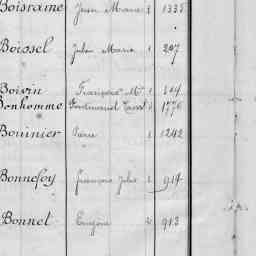 Boisrame Jean Marie 2 1335
Boissel Jules Marie 1 297
Boivin François M. 1
Bonhomme Ferdinand 1 1770
Bouinier Pierre 1 1242
Bonnefoy François Jules 1 914
Bonnet Eugène 2 913